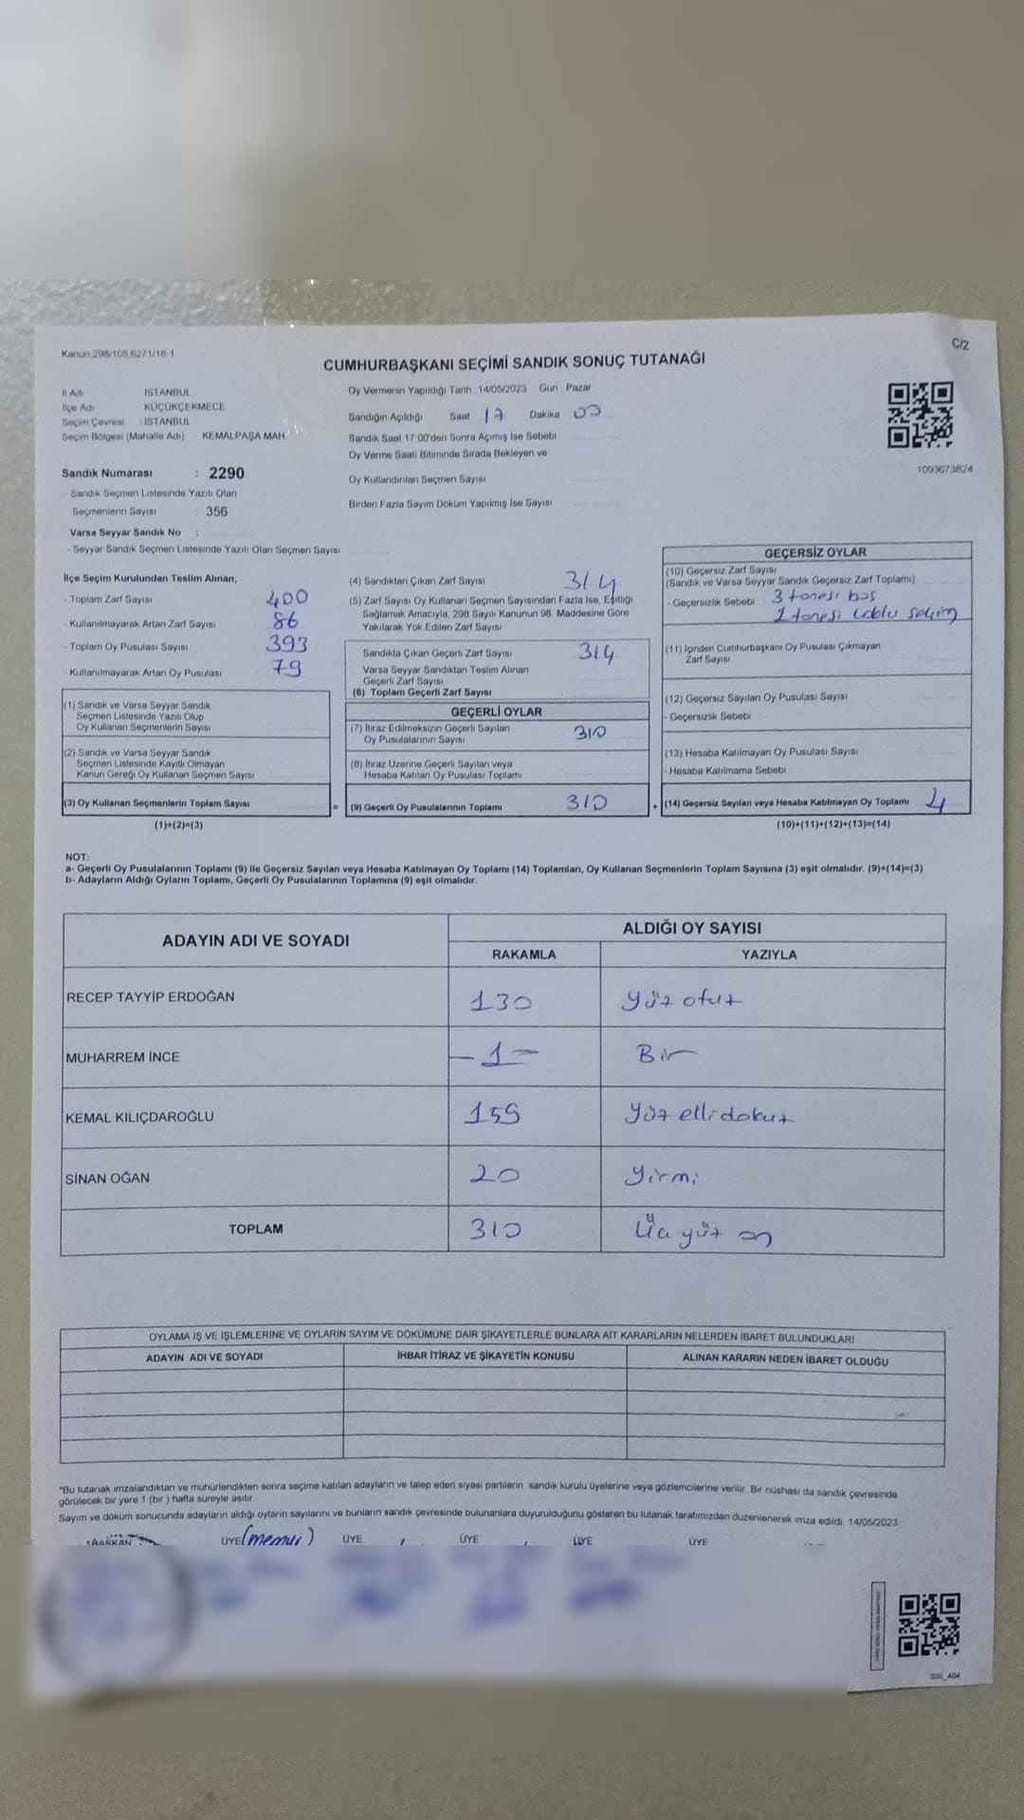 Kanun 298/105,6271/18-1
C/2
CUMHURBAŞKANI SEÇİMİ SANDIK SONUÇ TUTANAĞI
İl Adı İSTANBUL
İlçe Adı KÜÇÜKÇEKMECE
Seçim Çevresi : İSTANBUL
Seçim Bölgesi (Mahalle Adı) KEMALPAŞA MAH
Sandık Numarası : 2290
- Sandık Seçmen Listesinde Yazılı Olan
Seçmenlerin Sayısı 356
Varsa Seyyar Sandık No :
- Seyyar Sandık Seçmen Listesinde Yazılı Olan Seçmen Sayısı
Oy Vermenin Yapıldığı Tarih 14/05/2023 Gün Pazar
Sandığın Açıldığı Saat 17 Dakika 00
Sandık Saat 17:00'den Sonra Açımış İse Sebebi
Oy Verme Saati Bitiminde Sırada Bekleyen ve
Oy Kullandırılan Seçmen Sayısı
Birden Fazla Sayım Döküm Yapılmış İse Sayısı
1093673824
İlçe Seçim Kurulundan Teslim Alınan,
- Toplam Zarf Sayısı 400
- Kullanılmayarak Artan Zarf Sayısı 86
- Toplam Oy Pusulası Sayısı 393
- Kullanılmayarak Artan Oy Pusulası 79
(1) Sandık ve Varsa Seyyar Sandık
Seçmen Listesinde Yazılı Olup
Oy Kullanan Seçmenlerin Sayısı
(2) Sandık ve Varsa Seyyar Sandık
Seçmen Listesinde Kayıtlı Olmayan
Kanun Gereği Oy Kullanan Seçmen Sayısı
(3) Oy Kullanan Seçmenlerin Toplam Sayısı
(1)+(2)=(3)
(4) Sandıktan Çıkan Zarf Sayısı 314
(5) Zarf Sayısı Oy Kullanan Seçmen Sayısından Fazla İse, Eşitliği
Sağlamak Amacıyla, 298 Sayılı Kanunun 98. Maddesine Göre
Yakılarak Yok Edilen Zarf Sayısı
Sandıkta Çıkan Geçerli Zarf Sayısı 314
Varsa Seyyar Sandıktan Teslim Alınan
Geçerli Zarf Sayısı
(6) Toplam Geçerli Zarf Sayısı
GEÇERLİ OYLAR
(7) İtiraz Edilmeksizin Geçerli Sayılan
Oy Pusulalarının Sayısı 310
(8) İtiraz Üzerine Geçerli Sayılan veya
Hesaba Katılan Oy Pusulası Toplamı
= (9) Geçerli Oy Pusulalarının Toplamı 310
GEÇERSİZ OYLAR
(10) Geçersiz Zarf Sayısı
(Sandık ve Varsa Seyyar Sandık Geçersiz Zarf Toplamı)
- Geçersizlik Sebebi 3 tanesi boş
1 tanesi seçim
(11) İçinden Cumhurbaşkanı Oy Pusulası Çıkmayan
Zarf Sayısı
(12) Geçersiz Sayılan Oy Pusulası Sayısı
- Geçersizlik Sebebi
(13) Hesaba Katılmayan Oy Pusulası Sayısı
- Hesaba Katılmama Sebebi
+ (14) Geçersiz Sayılan veya Hesaba Katılmayan Oy Toplamı 4
(10)+(11)+(12)+(13)=(14)
NOT:
a- Geçerli Oy Pusulalarının Toplamı (9) ile Geçersiz Sayılan veya Hesaba Katılmayan Oy Toplamı (14) Toplamları, Oy Kullanan Seçmenlerin Toplam Sayısına (3) eşit olmalıdır. (9)+(14)=(3)
b- Adayların Aldığı Oyların Toplamı, Geçerli Oy Pusulalarının Toplamına (9) eşit olmalıdır.
ADAYIN ADI VE SOYADI ALDIĞI OY SAYISI
RAKAMLA YAZIYLA
RECEP TAYYİP ERDOĞAN 130 yüz otuz
MUHARREM İNCE - 1 - Bir
KEMAL KILIÇDAROĞLU 159 yüz elli dokuz
SİNAN OĞAN 20 yirmi
TOPLAM 310 Üç yüz on
OYLAMA İŞ VE İŞLEMLERİNE VE OYLARIN SAYIM VE DÖKÜMÜNE DAİR ŞİKAYETLERLE BUNLARA AİT KARARLARIN NELERDEN İBARET BULUNDUKLARI
ADAYIN ADI VE SOYADI İHBAR İTİRAZ VE ŞİKAYETİN KONUSU ALINAN KARARIN NEDEN İBARET OLDUĞU
*Bu tutanak imzalandıktan ve mühürlendikten sonra seçime katılan adayların ve talep eden siyasi partilerin sandık kurulu üyelerine veya gözlemcilerine verilir. Bir nüshası da sandık çevresinde
görülecek bir yere 1 (bir ) hafta süreyle asılır
Sayım ve döküm sonucunda adayların aldığı oyların sayılarını ve bunların sandık çevresinde bulunanlara duyurulduğunu gösteren bu tutanak tarafımızdan düzenlenerek imza edildi. 14/05/2023
BAŞKAN ÜYE (memur) ÜYE ÜYE ÜYE ÜYE